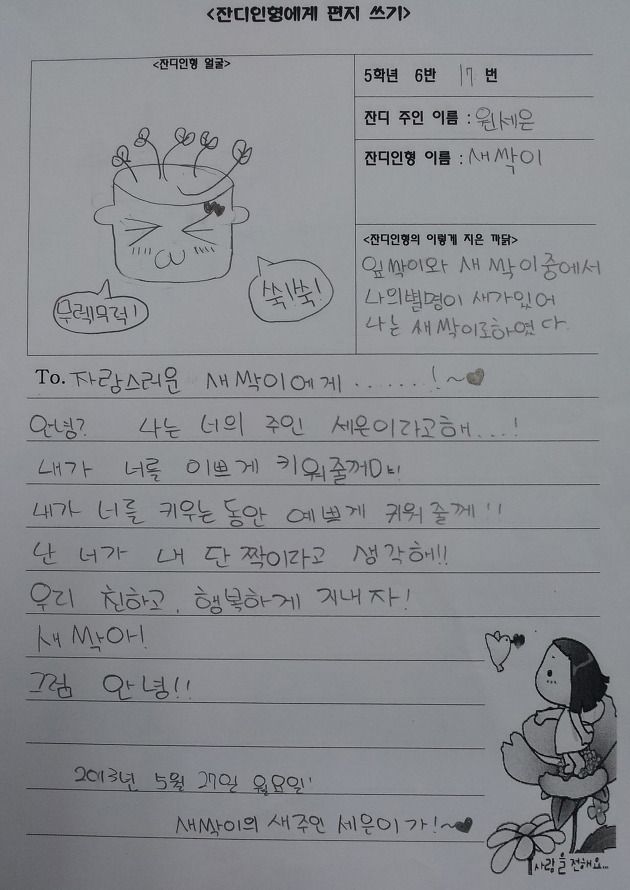 <잔디인형에게 편지 쓰기>
<잔디인형 얼굴>
무럭무럭!
쑥!쑥!
5학년 6반 17 번
잔디 주인 이름 : 원세은
잔디인형 이름 : 새싹이
<잔디인형의 이렇게 지은 까닭>
잎싹이와 새싹이중에서
나의별명이 새가있어
나는 새싹이로하였다.
To. 자랑스러운 새싹이에게 .......!~♥
안녕? 나는 너의 주인 세은이라고해...!
내가 너를 이쁘게 키워줄꺼
내가 너를 키우는동안 예쁘게 키워줄께!!
난 너가 내 단짝이라고 생각해!!
우리 친하고, 행복하게 지내자!
새싹아!
그럼 안녕!!
2013년 5월 27일 월요일
새싹이의 새주인 세은이가!~♥
사랑을 전해요...